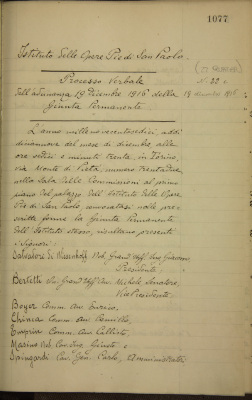 1077
Istituto delle Opere Pie di San Paolo
N. 22
Processo Verbale
dell'adunanza 19 Dicembre 1916 della
19 dicembre 1916
Giunta Permanente
L'anno millenovecentosedici, addì
diciannove del mese di dicembre, alle
ore sedici e minuti trenta, in Torino,
via Monte di Pietà, numero trentadue
nella Sala delle Commissioni al primo
piano del palazzo dell'Istituto delle Opere
Pie di San Paolo, convocatasi nelle pre
scritte forme la Giunta Permanente
dell'Istituto stesso, risultano presenti
i Signori:
Salvatore di Nob. Grand'Uff. Avv. Giovanni
Presidente
Bertetti Grand'Uff. Avv. Michele, Senatore,
Vice Presidente
Boyer Comm. Avv. Enrico,
Chirona Comm. Avv. Camillo,
Comm. Avv. Callisto,
Marino Nob. Cav. Avv.
Spingardi Cav. Gen. Carlo, Amministratori